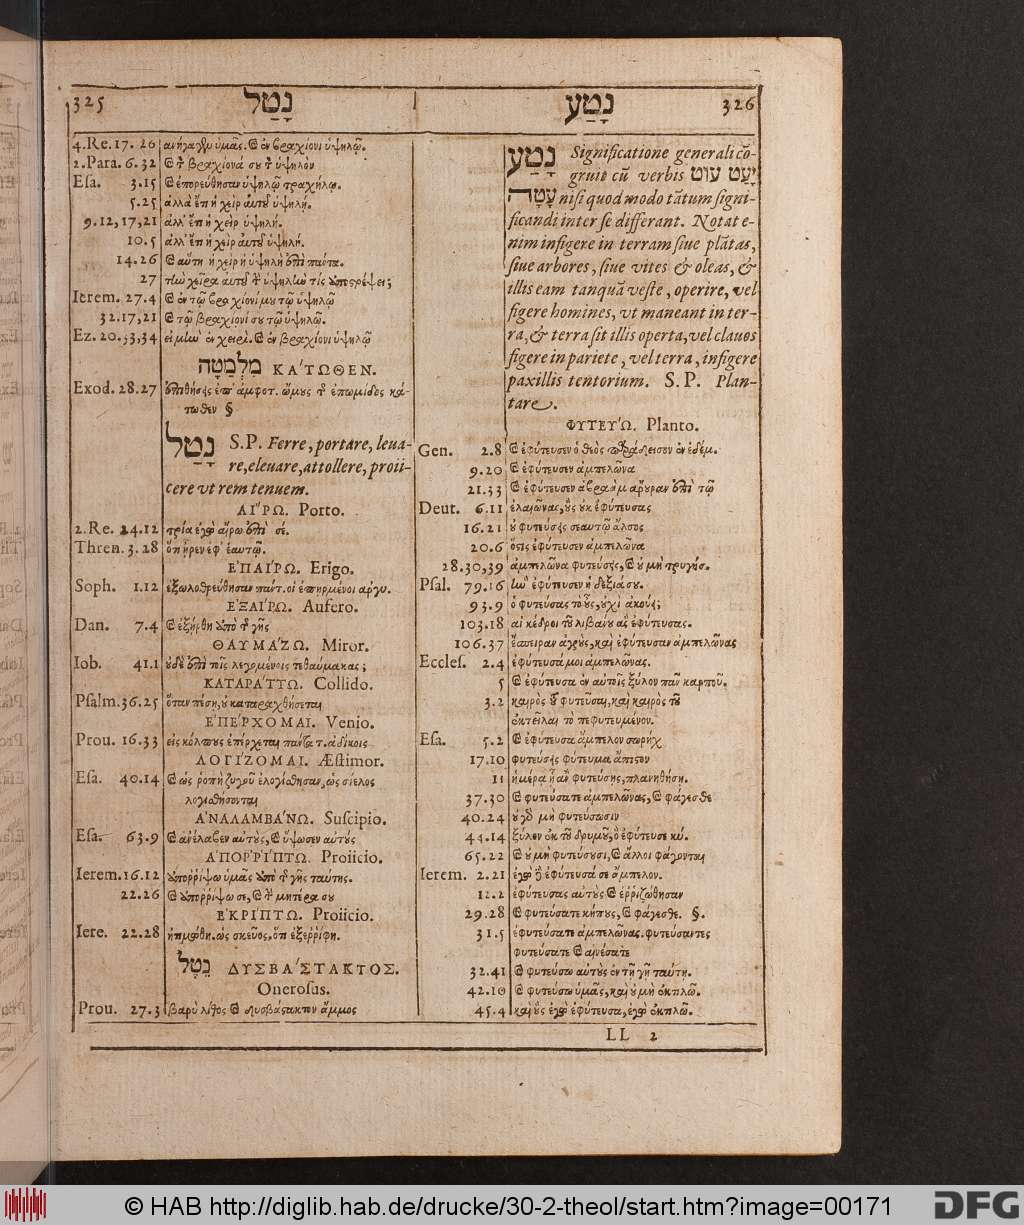 325 נָטַל נָטַע 326
4.Re.17. 26 ἀνήγαγεν ὑμᾶς. & ἐν βραχίονι ὑψηλῷ.
2.Para. 6.32 & τ βραχίονά σου τ ὑψηλὸν
Esa. 3.15 & ἐπορεύθησαν ὑψηλῷ τραχήλῳ.
5.25 ἀλλὰ ἔτι ἡ χεὶρ αὐτοῦ ὑψηλή.
9.12,17,21 ἀλλ' ἔτι ἡ χεὶρ ὑψηλή.
10.5 ἀλλ' ἔτι ἡ χεὶρ αὐτοῦ ὑψηλή.
14.26 & αὕτη ἡ χεὶρ ἡ ὑψηλὴ ἐπὶ πάντα.
27 τὼ χεῖρα αὐτοῦ τ ὑψηλὼ τίς ἀποστρέψει;
Ierem. 27.4 & ἐν τῷ βραχίονί μου τῷ ὑψηλῷ
32.17,21 & τῷ βραχίονί σου τῷ ὑψηλῷ.
Ez. 20.33,34 εἰ μὼ ἐν χειρὶ. & ἐν βραχίονι ὑψηλῷ
מִלְמַטָּה ΚΑ'ΤΩΘΕΝ.
Exod. 28.27 ἐπιθήσεις ἐπ' ἀμφοτ. ὤμους τ ἐπωμίδος κά-
τωθεν §
נָטַל S.P. Ferre, portare, leua-
re, eleuare, attollere, proii-
cere vt rem tenuem.
ΑΙ'ΡΩ. Porto.
2.Re. 24.12 τρία ἐγὼ αἴρω ἐπὶ σέ.
Thren. 3. 28 ὅτι ἦρεν ἐφ' ἑαυτῷ.
Ε'ΠΑΙ'ΡΩ. Erigo.
Soph. 1.12 ἐξωλοθρεύθησαν πάντ. οἱ ἐπηρμένοι ἀργυ.
Ε'ΞΑΙ'ΡΩ. Aufero.
Dan. 7.4 & ἐξήρθη ἀπὸ τ γῆς
ΘΑΥΜΑ'ΖΩ. Miror.
Iob. 41.1 οὐδὲ ἐπὶ τοῖς λεγομένοις τεθαύμακας;
ΚΑΤΑΡΑ'ΤΤΩ. Collido.
Psalm. 36.25 ὅταν πέσῃ, οὐ καταραχθήσεται
Ε'ΠΕ'ΡΧΟΜΑΙ. Venio.
Prou. 16.33 εἰς κόλπους ἐπέρχεται πάντα τ. ἀδίκοις
ΛΟΓΙ'ΖΟΜΑΙ. Æstimor.
Esa. 40.14 & ὡς ῥοπὴ ζυγοῦ ἐλογίσθησαν, ὡς σίελος
λογισθήσονται
Α'ΝΑΛΑΜΒΑ'ΝΩ. Suscipio.
Esa. 63.9 & ἀνέλαβεν αὐτοὺς, & ὕψωσεν αὐτοὺς
Α'ΠΟΡ'ΡΙ'ΠΤΩ. Proiicio.
Ierem. 16.12 ἀπορρίψω ὑμᾶς ἀπὸ τ γῆς ταύτης.
22.26 & ἀπορρίψω σε, & τ μητέρα σου
Ε'ΚΡΙ'ΠΤΩ. Proiicio.
Iere. 22.28 ἠτιμώθη. ὡς σκεῦος, ὅτι ἐξερρίφη.
נֵטֶל ΔΥΣΒΑ'ΣΤΑΚΤΟΣ.
Onerosus.
Prou. 27.3 βαρὺ λίθος & δυσβάστακτον ἄμμος
נָטַע Significatione generali cō-
gruit cū verbis עוּט יָעַט
עָטָה nisi quod modo tātum signi-
ficandi inter se differant. Notat e-
nim infigere in terram siue plātas,
siue arbores, siue vites & oleas, &
illis eam tanquā veste, operire, vel
figere homines, vt maneant in ter-
ra, & terra sit illis operta, vel clauos
figere in pariete, vel terra, infigere
paxillis tentorium. S.P. Plan-
tare.
ΦΥΤΕΥ'Ω. Planto.
Gen. 2.8 & ἐφύτευσεν ὁ θεὸς παράδεισον ἐν ἐδέμ.
9.20 & ἐφύτευσεν ἀμπελῶνα
21.33 & ἐφύτευσεν ἀβραὰμ ἄρουραν ἐπὶ τῷ
Deut. 6.11 ἐλαιῶνας, οὓς οὐκ ἐφύτευσας
16.21 οὐ φυτεύσεις σεαυτῷ ἄλσος
20.6 ὅστις ἐφύτευσεν ἀμπελῶνα
28.30,39 ἀμπελῶνα φυτεύσεις, & οὐ μὴ τρυγήσεις.
Psal. 79.16 ὼ ἐφύτευσεν ἡ δεξιά σου.
93.9 ὁ φυτεύσας τὸ οὖς, οὐχὶ ἀκούει;
103.18 αἱ κέδροι τοῦ λιβάνου ἃς ἐφύτευσας.
106.37 ἔσπειραν ἀγροὺς, καὶ ἐφύτευσαν ἀμπελῶνας
Eccles. 2.4 ἐφύτευσά μοι ἀμπελῶνας.
5 & ἐφύτευσα ἐν αὐτοῖς ξύλον πᾶν καρποῦ.
3.2 καιρὸς τοῦ φυτεῦσαι, καὶ καιρὸς τοῦ
ἐκτεῖλαι τὸ πεφυτευμένον.
Esa. 5.2 & ἐφύτευσα ἄμπελον σωρὴχ
17.10 φυτεύσεις φύτευμα ἄπιστον
11 ἡμέρᾳ ᾗ ἂν φυτεύσῃς, πλανηθήσῃ.
37.30 & φυτεύσατε ἀμπελῶνας, & φάγεσθε
40.24 οὐ γὰρ μὴ φυτεύσωσιν
44.14 ξύλον ἐκ τοῦ δρυμοῦ, ὃ ἐφύτευσε κύ.
65.22 & οὐ μὴ φυτεύσουσι, & ἄλλοι φάγονται
Ierem. 2.21 ἐγὼ δὲ ἐφύτευσά σε ἄμπελον.
12.2 ἐφύτευσας αὐτοὺς & ἐρριζώθησαν
29.28 & φυτεύσατε κήπους, & φάγεσθε. §.
31.5 ἐφυτεύσατε ἀμπελῶνας. φυτεύσαντες
φυτεύσατε & αἰνέσατε
32.41 & φυτεύσω αὐτοὺς ἐν τῇ γῇ ταύτῃ.
42.10 & φυτεύσω ὑμᾶς, καὶ οὐ μὴ ἐκτιλῶ.
45.4 καὶ οὓς ἐγὼ ἐφύτευσα, ἐγὼ ἐκτιλῶ.
LL 2
© HAB http://diglib.hab.de/drucke/30-2-theol/start.htm?image=00171 DFG